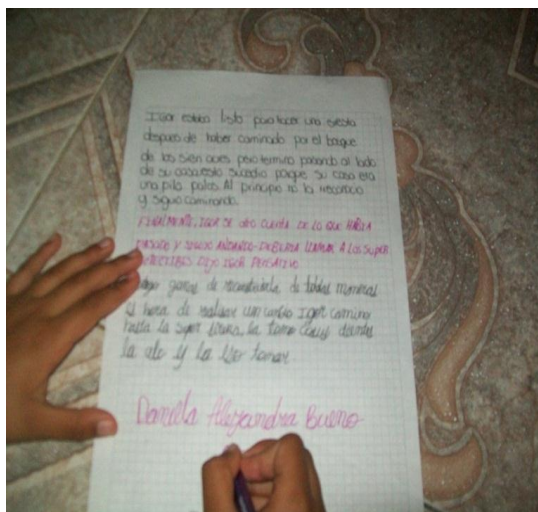 Igor estaba listo para hacer una siesta
despues de haber caminado por el bosque
de los sien acres pero termino pasando al lado
de su casa.esto sucedio porque su casa era
una pila palos. Al principio no la reconocio
y siguio caminando.
FINALMENTE, IGOR SE DIO CUENTA DE LO QUE HABIA
PASADO Y SIGUIO ANDANDO-DEBERIA LLAMAR A LOS SUPER
DETECTIBES DIJO IGOR PENSATIVO
ganas de reconstruirla de todas maneras
es hora de realisar un cambio Igor camino
hasta la super la tomo
la y la tomar.
Daniela Alejandra Bueno